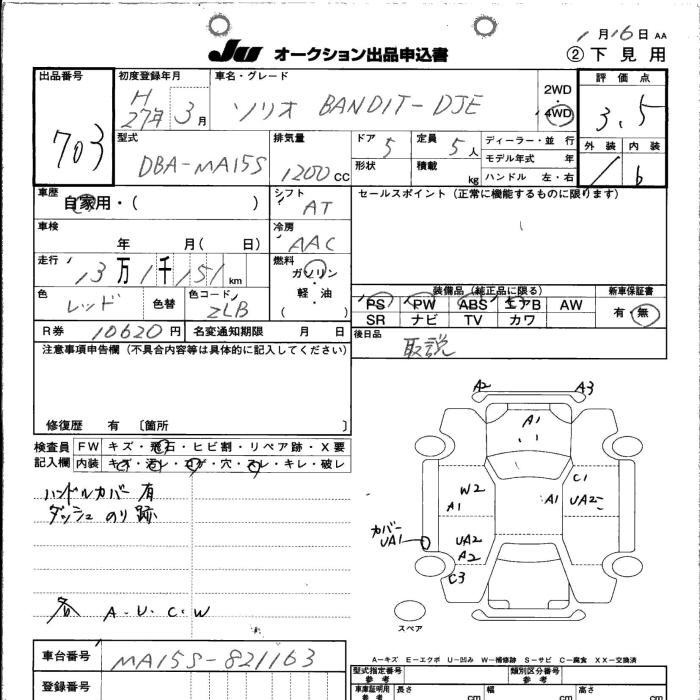 1月16日 AA
JU オークション出品申込書 ②下見用
出品番号 703
初度登録年月 H27年3月
車名・グレード ソリオ BANDIT-DJE
2WD
4WD
評価点 3.5
外装 内装
6
型式 DBA-MA15S
排気量 1200cc
ドア 5
定員 5人
形状
積載 kg
ディーラー・並行
モデル年式 年
ハンドル 左・右
車歴 自家用・( )
シフト AT
セールスポイント(正常に機能するものに限ります)
車検 年 月( 日)
冷房 AAC
走行 13万1千151km
燃料 ガソリン・軽・油 ( )
色 レッド 色替
色コード ZLB
装備品(純正品に限る) 新車保証書
PS PW ABS エアB AW
SR ナビ TV カワ
有・無
R券 10620円 名変通知期限 月 日
後日品 取説
注意事項申告欄(不具合内容等は具体的に記入してください)
修復歴 有 〔箇所 〕
検査員記入欄
FW キズ・飛石・ヒビ割・リペア跡・X要
内装 キズ・汚レ・コゲ・穴・スレ・キレ・破レ
ハンドルカバー有
ダッシュ のり跡
A・U・C・W
A2 A3
A1
C1
W2 A1 A1 UA2
カバー UA1
UA2
A2
C3
スペア
A-キズ E-エクボ U-凹み W-補修跡 S-サビ C-腐食 XX-交換済
車台番号 MA15S-821163
登録番号
型式指定番号 参考
類別区分番号 参考
車庫証明用 参考
長さ cm 幅 cm 高さ cm